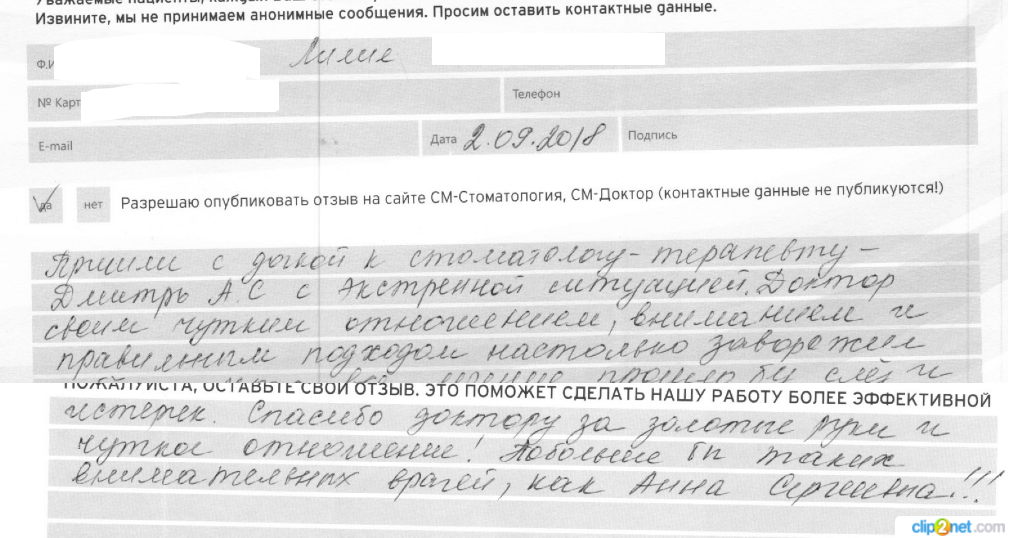 Извините, мы не принимаем анонимные сообщения. Просим оставить контактные данные.
Ф.И
Лилие
№ Карт
Телефон
E-mail
Дата 2.09.2018
Подпись
да нет Разрешаю опубликовать отзыв на сайте СМ-Стоматология, СМ-Доктор (контактные данные не публикуются!)
Пришли с дочкой к стоматологу-терапевту -
А.С с экстренной ситуацией. Доктор
своим чутким отношением, вниманием и
правильным подходом настолько заворожил
ПОЖАЛУЙСТА, ОСТАВЬТЕ СВОЙ ОТЗЫВ. ЭТО ПОМОЖЕТ СДЕЛАТЬ НАШУ РАБОТУ БОЛЕЕ ЭФФЕКТИВНОЙ
истерик. Спасибо доктору за золотые руки и
чуткое отношение! Побольше бы таких
внимательных врачей, как Анна Сергеевна!!!
clip2net.com